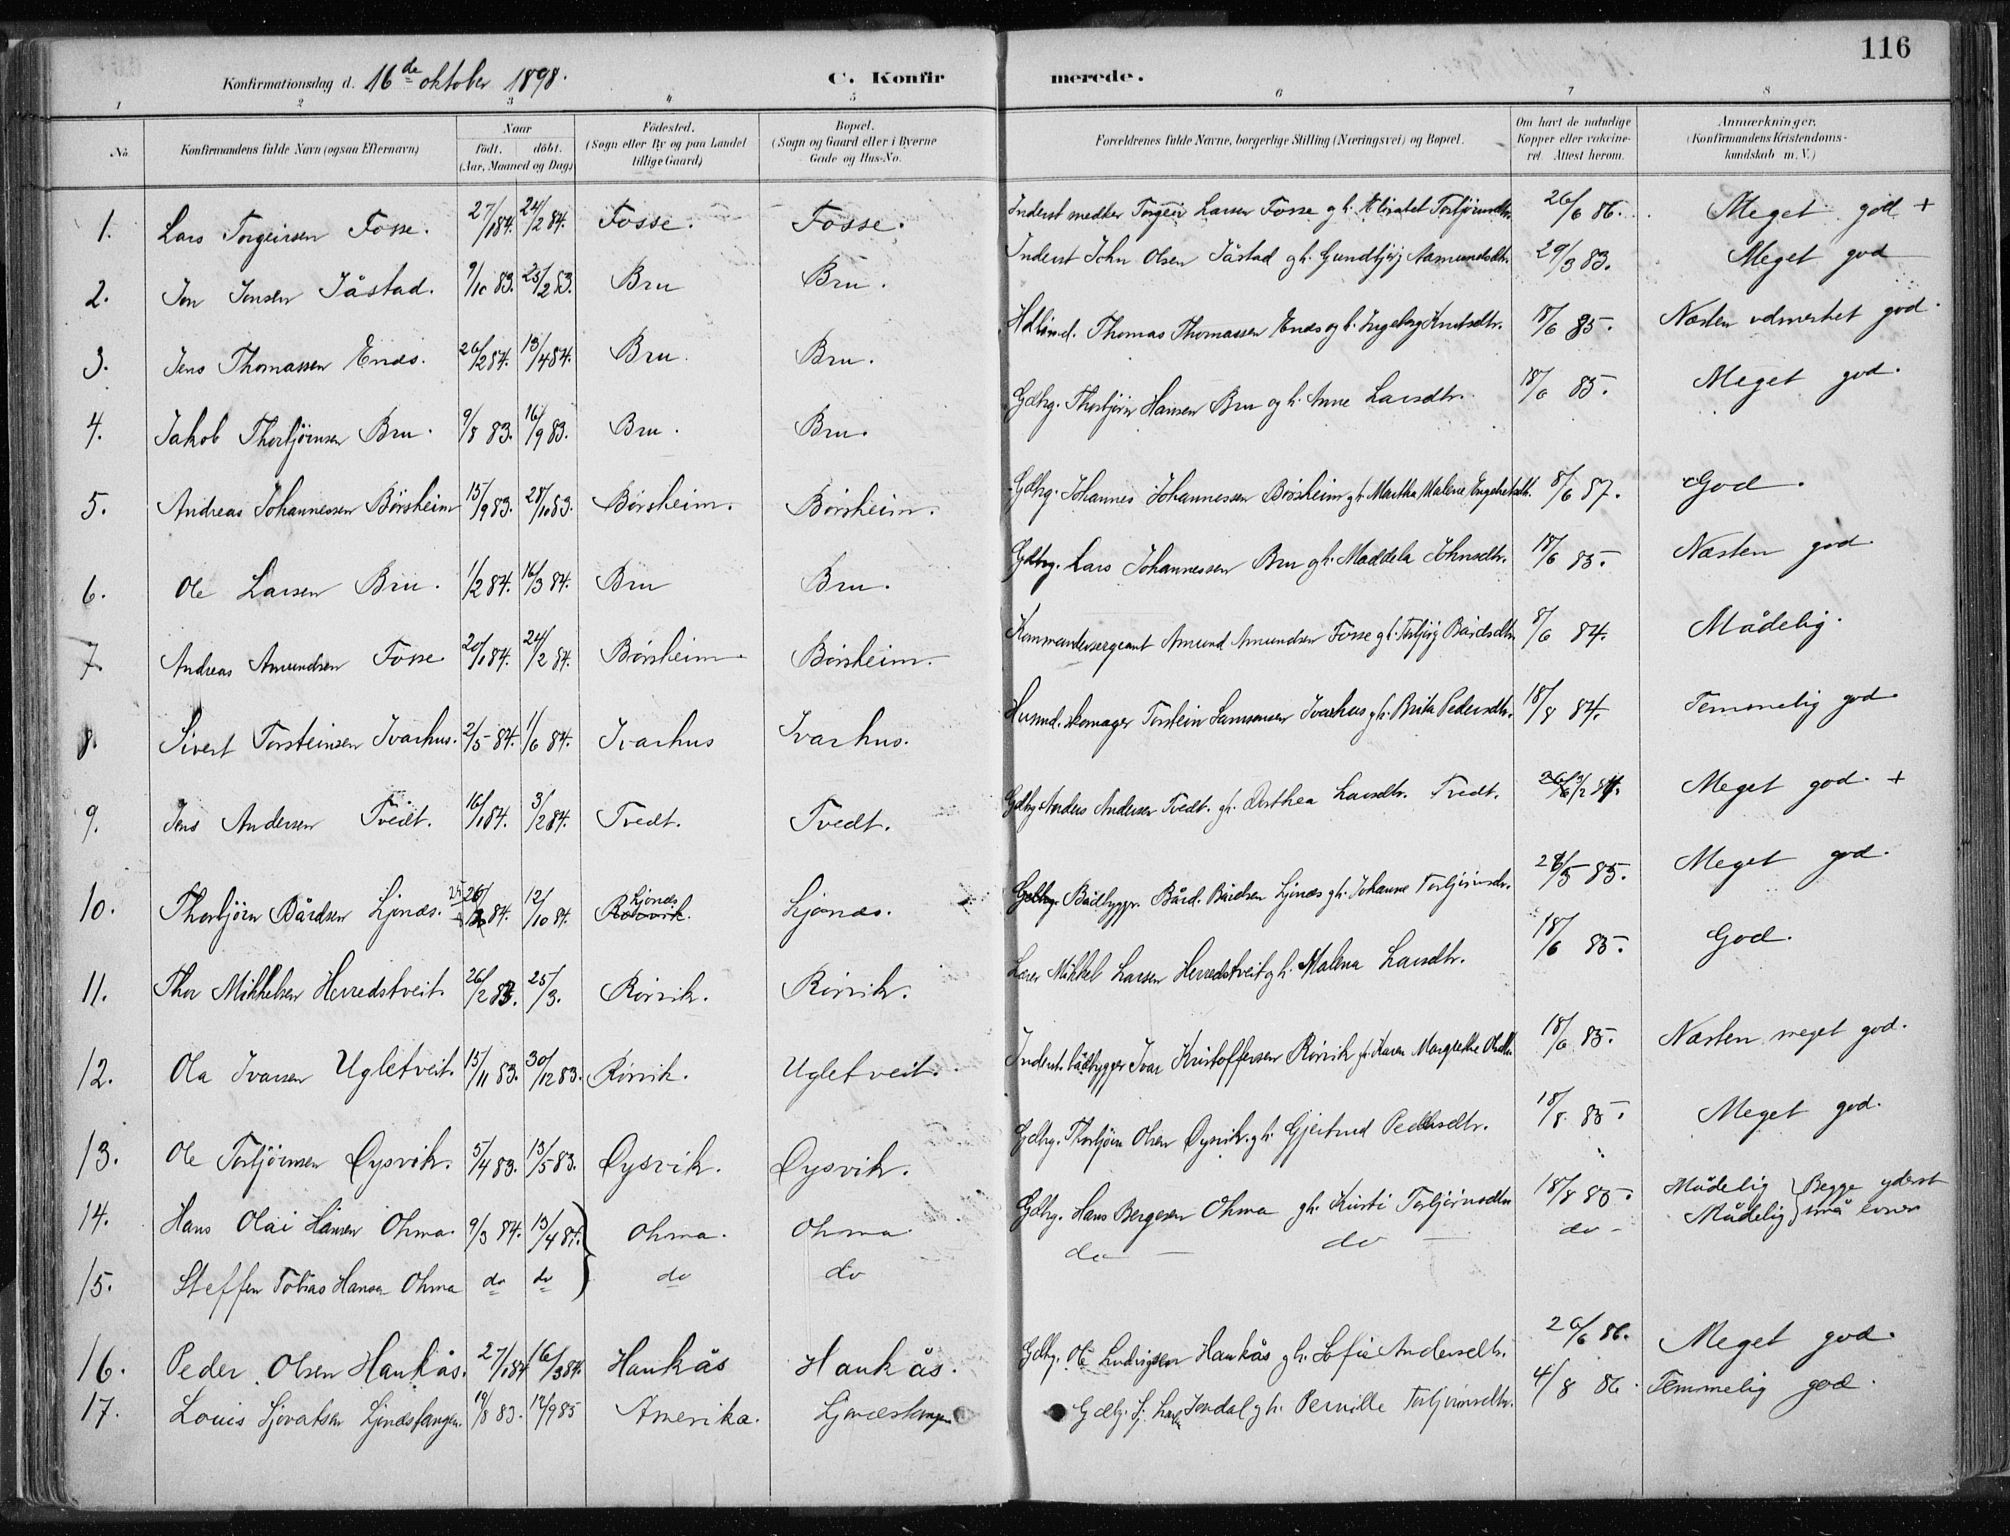 116
Konfirmationsdag d. 16de oktober 1898. C. Konfirmerede.
1 2 3 4 5 6 7 8
No. Konfirmandens fulde Navn (ogsaa Efternavn) Naar födt. döbt. (Aar, Maaned og Dag) Födested. (Sogn eller By og paa Landet tillige Gaard) Bopæl. (Sogn og Gaard eller i Byerne Gade og Hus-No. Forældrenes fulde Navne, borgerlige Stilling (Næringsvei) og Bopæl. Om havt de naturlige Kopper eller vakcineret Attest herom. Anmærkninger. (Konfirmandens Kristendomskundskab m. V.)
1. Lars Torgeirsen Fosse. 27/1 84. 24/2 84. Fosse. Fosse. Inderst Torgeir Larsen Fosse gh. Torbjörnsdtr. 26/6 86. Meget god +
2. Jon Jonsen Jåstad. 9/10 83. 25/2 83. Bru Bru. Inderst John Olsen Jåstad gh. Gundbjörg Aamundsdtr. 29/3 83. Meget god
3. Jens Thomassen Enæs. 26/2 84. 13/4 84. Bru. Bru. Thomas Thomassen Enæs og h. Ingeborg Knutsdtr. 18/6 85. Næsten udmerket god.
4. Jakob Thorbjörnsen Bru. 9/8 83. 16/9 83. Bru. Bru. Gdbrg. Thorbjörn Hansen Bru og h. Anne Larsdtr. 18/6 85. Meget god.
5. Andreas Johannessen Börsheim 15/9 83. 28/10 83. Börsheim. Börsheim. Gdbrg. Johannes Johannessen Börsheim gh. Martha Malene Engelretsdtr. 8/6 87. God.
6. Ole Larsen Bru. 1/2 84. 16/3 84. Bru Bru. Gdbrg. Lars Johannessen Bru gh. Maddela Johnsdtr. 18/6 85. Næsten god
7. Andreas Amundsen Fosse 20/1 84. 24/2 84. Börsheim. Börsheim. Kommandersergeant Amund Amundsen Fosse gh. Torbjörg Bårdsdtr. 8/6 84. Mådelig.
8. Sivert Torsteinsen Ivarhus. 2/5 84. 1/6 84. Ivarhus Ivarhus. Husmd. skomager Torstein Samsonsen Ivarhus gh. Brita Pedersdtr. 18/8 84. Temmelig god
9. Jens Andersen Tvedt. 16/1 84. 3/2 84. Tvedt. Tvedt. Gdbrg. Anders Andersen Tvedt. gh. Dorthea Larsdtr. Tvedt. Meget god. +
10. Thorbjörn Bårdsen Ljonæs. 84. 12/10 84. Ljonæs Ljonæs. Gdbrg. Bådbyggr. Bård. Bårdsen Ljonæs gh. Johanne Torbjörnsdr. 26/5 85. Meget god.
11. Thor Mikkelsen Herredstveit. 26/2 83. 25/3. Rörvik. Rörvik. Lærer Mikkel Larsen Herredstveit gh. Malena Larsdtr. 18/6 85. God.
12. Ola Ivarsen Ugletveit. 15/11 83. 30/12 83. Rörvik. Ugletveit. Inderst. bådbygger Ivar Kristoffersen Rörvik gh. Karen Margrethe 18/6 85. Næsten meget god.
13. Ole Torbjörnsen Öysvik. 5/4 83. 13/5 83. Öysvik. Öysvik. Gdbrg. Thorbjörn Olsen Öysvik. gh. Gjertrud Pedersdtr. 18/8. 85. Meget god.
14. Hans Olai Hansen Ohma. 9/3 84. 13/4 84. Ohma. Ohma Gdbrg. Hans Bergesen Ohma gh. Kristi Torbjörnsdtr 18/8 85. Mådelig } Begge yderst
15. Steffen Tobias Hansen Ohma do do do do do do do Mådelig } små evner
16. Peder Olsen Haukås. 27/1 84 16/3 84. Haukås Haukås. Gdbrg. Ole Ludvigsen Haukås gh. Sofie Andersdtr. 26/6 86. Meget god.
17. Louis Sjovatsen Ljonæsstangen. 19/8 83. 14/9 85 Amerika. Ljonæstangen Gdbrg. Sj. Larsen Jondal gh. Pernille Torbjörnsdtr. 4/8 86. Temmelig god.